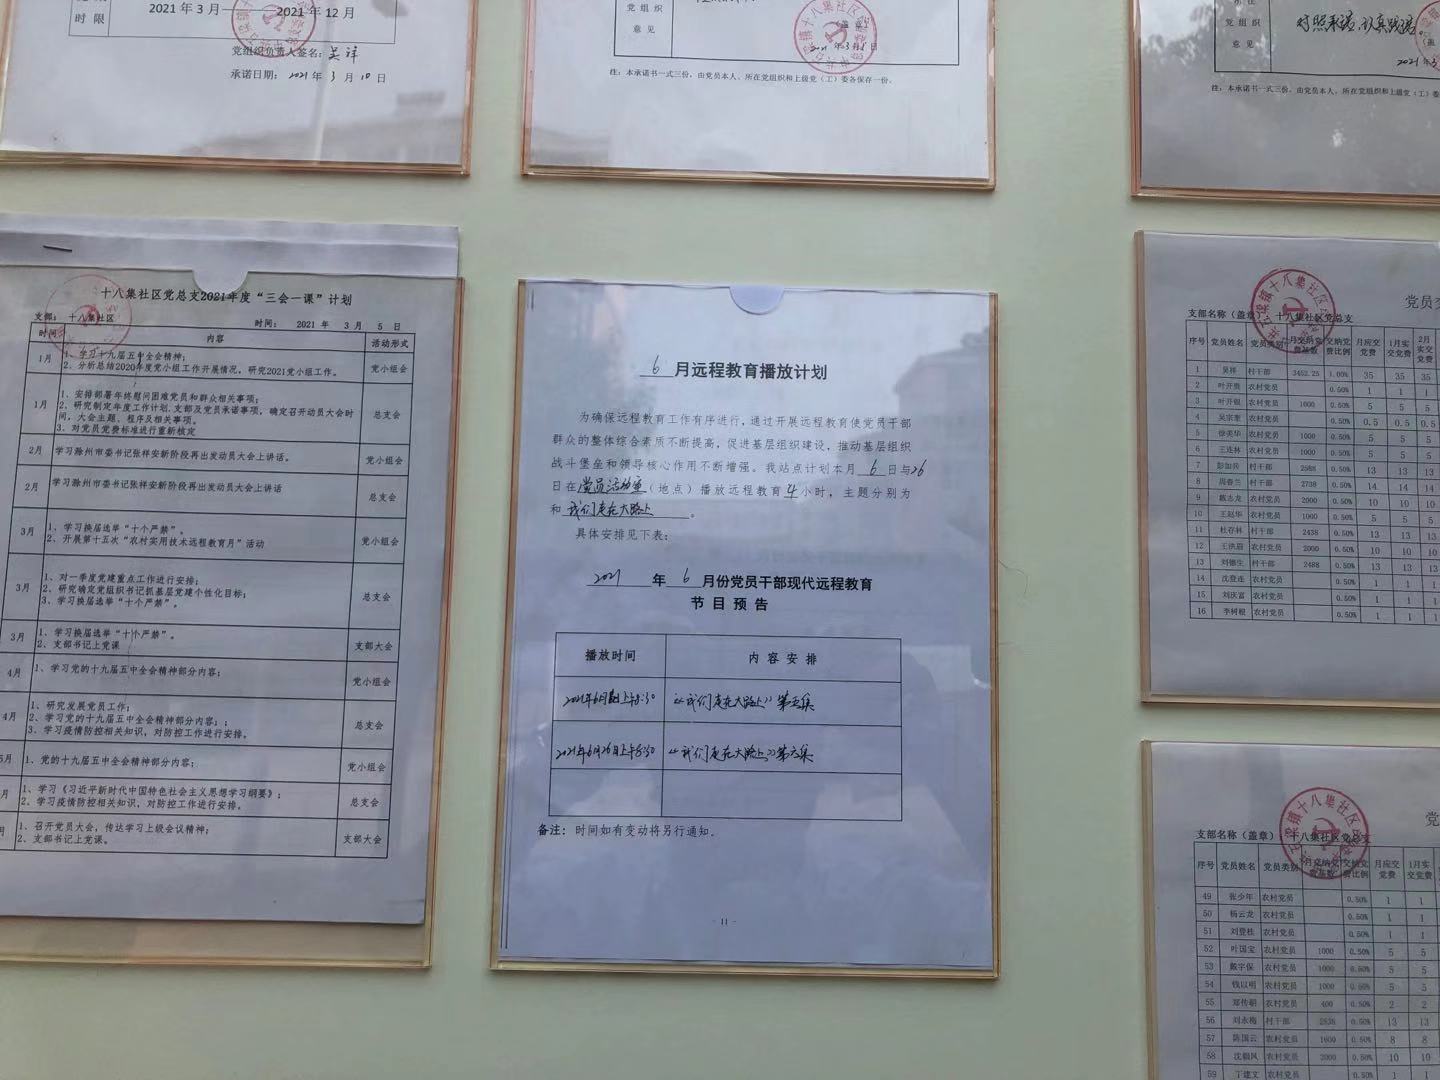 时 限
2021 年 3 月 —— 2021 年 12 月
党组织负责人签名：吴祥
承诺日期：2021 年 3 月 10 日
党 组 织
意 见
（盖 章）
2021 年 3 月 日
注：本承诺书一式三份，由党员本人、所在党组织和上级党（工）委各保存一份。
党 组 织
意 见
对照承诺，认真践诺。
2021 年
注：本承诺书一式三份，由党员本人、所在党组织和上级党（工）委各
十八集社区党总支2021年度“三会一课”计划
支部： 十八集社区 时间： 2021 年 3 月 5 日
时间 内容 活动形式
1月 1、学习十九届五中全会精神；
2、分析总结2020年度党小组工作开展情况，研究2021党小组工作。 党小组会
1月 1、安排部署年终慰问困难党员和群众相关事项；
2、研究制定年度工作计划,支部及党员承诺事项，确定召开动员大会时
间，大会主题、程序及相关事项。
3、对党员党费标准进行重新核定 总支会
2月 学习滁州市委书记张祥安新阶段再出发动员大会上讲话。 党小组会
2月 学习滁州市委书记张祥安新阶段再出发动员大会上讲话 总支会
3月 1、学习换届选举“十个严禁”。
2、开展第十五次“农村实用技术远程教育月”活动 党小组会
3月 1、对一季度党建重点工作进行安排；
2、研究确定党组织书记抓基层党建个性化目标；
3、学习换届选举“十个严禁”。 总支会
3月 1、学习换届选举“十个严禁”。
2、支部书记上党课 支部大会
4月 1、学习党的十九届五中全会精神部分内容； 党小组会
4月 1、研究发展党员工作；
2、学习党的十九届五中全会精神部分内容；；
3、学习疫情防控相关知识，对防控工作进行安排。 总支会
5月 1、党的十九届五中全会精神部分内容； 党小组会
月 1、学习《习近平新时代中国特色社会主义思想学习纲要》；
2、学习疫情防控相关知识，对防控工作进行安排。 总支会
月 1、召开党员大会，传达学习上级会议精神；
2、支部书记上党课。 支部大会
6 月远程教育播放计划
为确保远程教育工作有序进行，通过开展远程教育使党员干部
群众的整体综合素质不断提高，促进基层组织建设，推动基层组织
战斗堡垒和领导核心作用不断增强。我站点计划本月 6 日与26
日在党员活动室（地点）播放远程教育4小时，主题分别为
和 我们走在大路上 。
具体安排见下表：
2021 年 6 月份党员干部现代远程教育
节 目 预 告
播放时间 内 容 安 排
2021年6月 日上午8:30 《我们走在大路上》第五集
2021年6月26日上午8:30 《我们走在大路上》第六集
备注： 时间如有变动将另行通知.
- 11 -
党员交
支部名称（盖章）：十八集社区党总支
序号 党员姓名 党员类别 月交纳党费基数 交纳党费比例 月应交党费 1月实交党费 2月实交党费
1 吴祥 村干部 3452.25 1.00% 35 35 35
2 叶开贵 农村党员 0.50% 1 1 1
3 叶开银 农村党员 1000 0.50% 5 5 5
4 吴宗奎 农村党员 0.50% 0.5 0.5 0.5
5 徐美华 农村党员 1000 0.50% 5 5 5
6 王连林 农村党员 1000 0.50% 5 5 5
7 彭如兵 村干部 2588 0.50% 13 13 13
8 周春兰 村干部 2738 0.50% 14 14 14
9 戴志龙 农村党员 2000 0.50% 10 10 10
10 王赵华 农村党员 1000 0.50% 5 5 5
11 杜存林 村干部 2438 0.50% 13 13 13
12 王洪眉 农村党员 2000 0.50% 10 10 10
13 刘德生 村干部 2488 0.50% 13 13 13
14 沈登连 农村党员 0.50% 1 1 1
15 刘庆富 农村党员 0.50% 1 1 1
16 李树根 农村党员 0.50% 1 1 1
党
支部名称（盖章）：十八集社区党总支
序号 党员姓名 党员类别 月交纳党费基数 交纳党费比例 月应交党费 1月实交党费
49 张少年 农村党员 0.50% 1 1
50 杨云龙 农村党员 0.50% 1 1
51 刘登桂 农村党员 0.50% 1 1
52 叶国宝 农村党员 1000 0.50% 5 5
53 戴宇保 农村党员 1000 0.50% 5 5
54 钱以明 农村党员 1000 0.50% 5 5
55 郑传朝 农村党员 400 0.50% 2 2
56 刘永梅 村干部 2538 0.50% 13 13
57 陈国云 农村党员 1600 0.50% 8 8
58 沈顺风 农村党员 2000 0.50% 10 10
59 丁建文 农村党员 0.50% 1 1